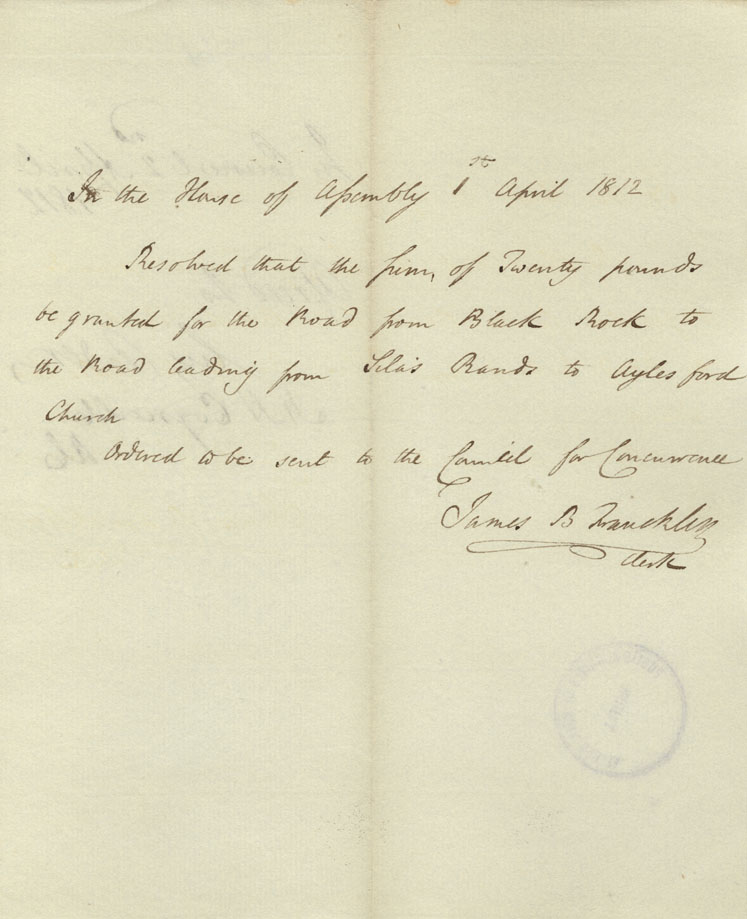 In the House of Assembly 1st April 1812
Resolved that the sum, of Twenty pounds
be granted for the Road from Black Rock to
the Road leading from Silas Rands to Aylesford
Church
Ordered to be sent to the Council for Concurrence
James B Franckliln
Clerk